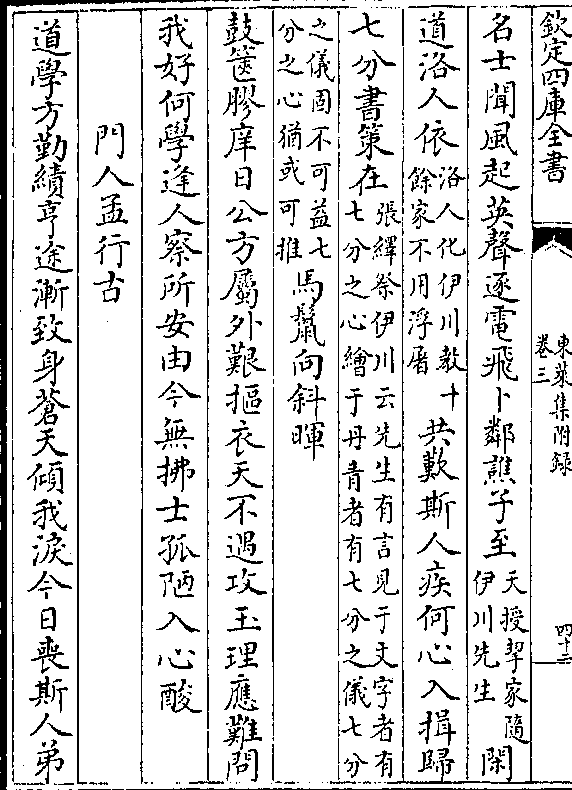 欽定四庫全書
東萊集附錄
卷三
四十二
名士聞風起英聲逐電飛卜鄰譙子至天授挈家隨伊川先生閑
道洛人依洛人化伊川教十餘家不用浮屠共歎斯人疾何心入揖歸
七分書策在張繹祭伊川云先生有言見于文字者有七分之心繪于丹青者有七分之儀七分
之儀固不可益七分之心猶或可推馬鬛向斜暉
鼓篋膠庠日公方屬外艱摳衣天不遇攻玉理應難問
我好何學逢人察所安由今無拂士孤陋入心酸
門人孟行古
道學方勤績亨途漸致身蒼天傾我淚今日喪斯人弟